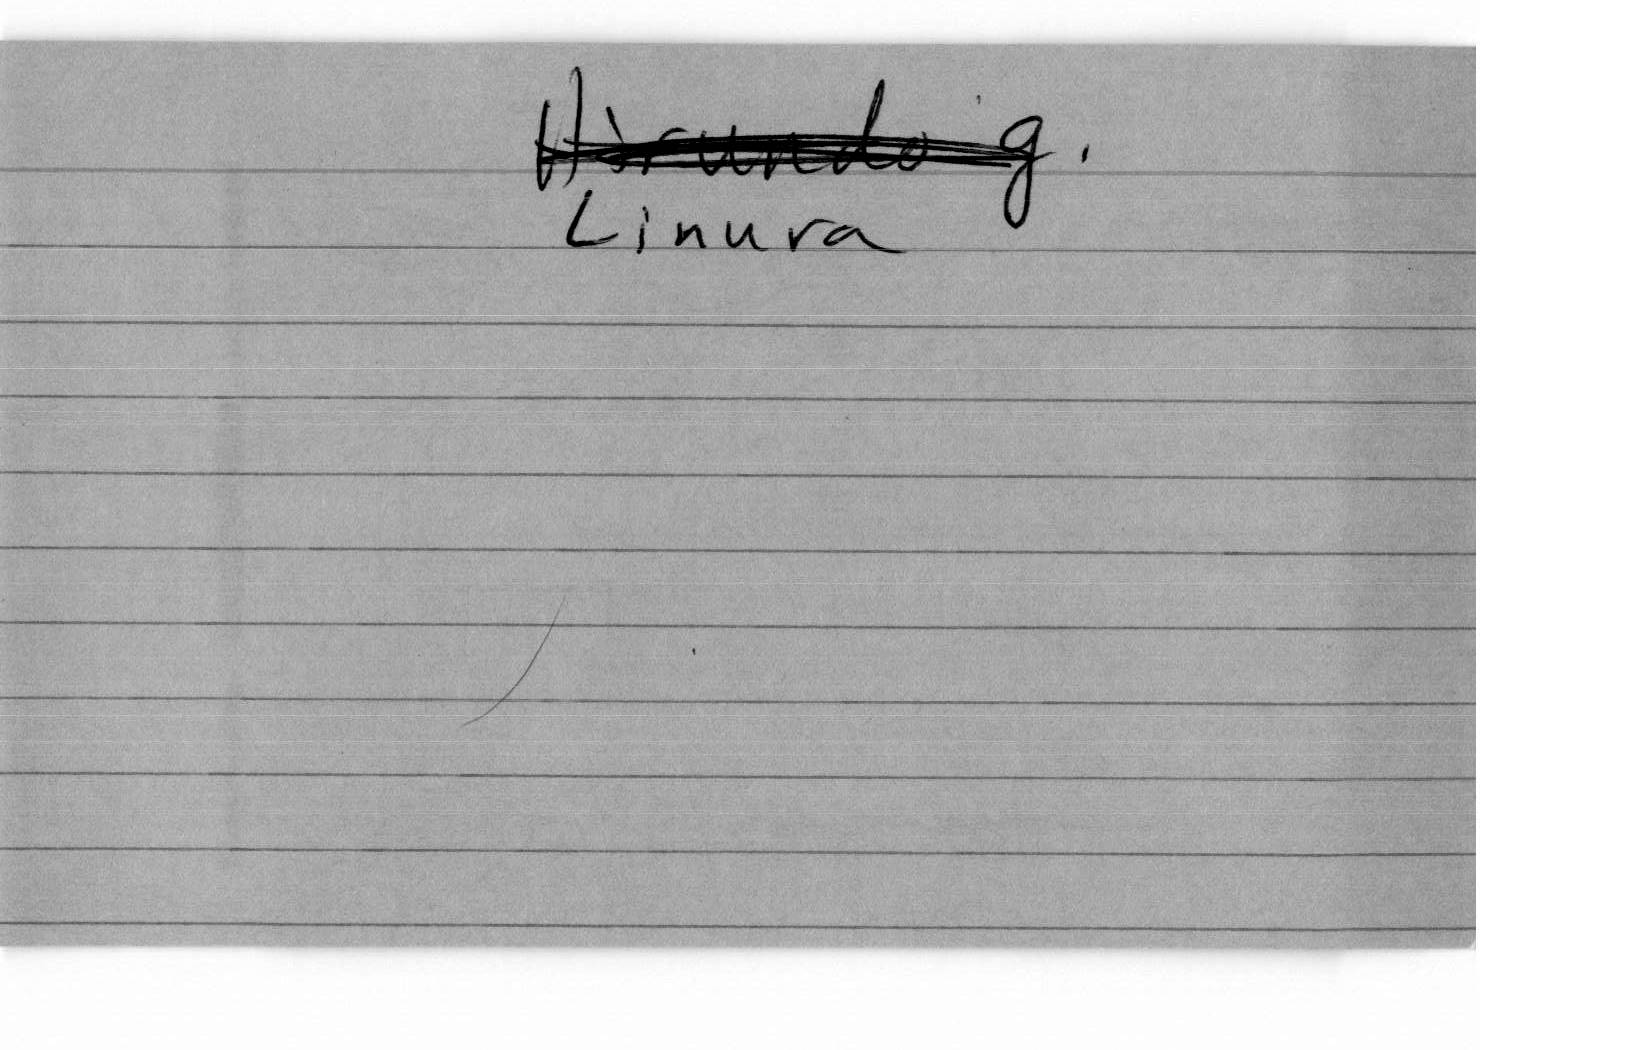 Hirundo g.
Linura